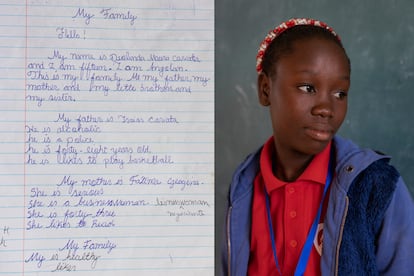 My Family
Hello!
My name is
and I am fifteen. I am Angolan.
This is my family. Me my father, my
mother and my little brothers and
my sister.
My father is Isaias
He is alcoholic
he is a police
he is forty-eight years old.
he is likes to play basketball
My mother is Fatima
She is serious
She is a businesswoman
She is forty-three
She likes to
My Family
My is healthy
likes